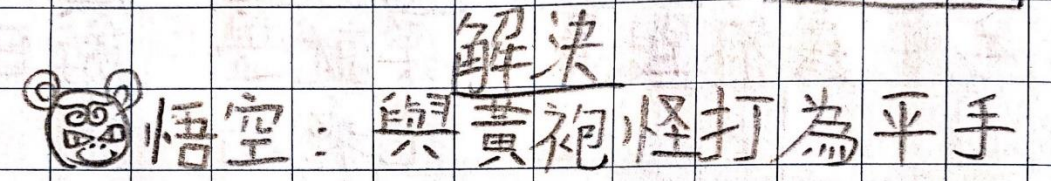 解決
悟空：與黃袍怪打為平手